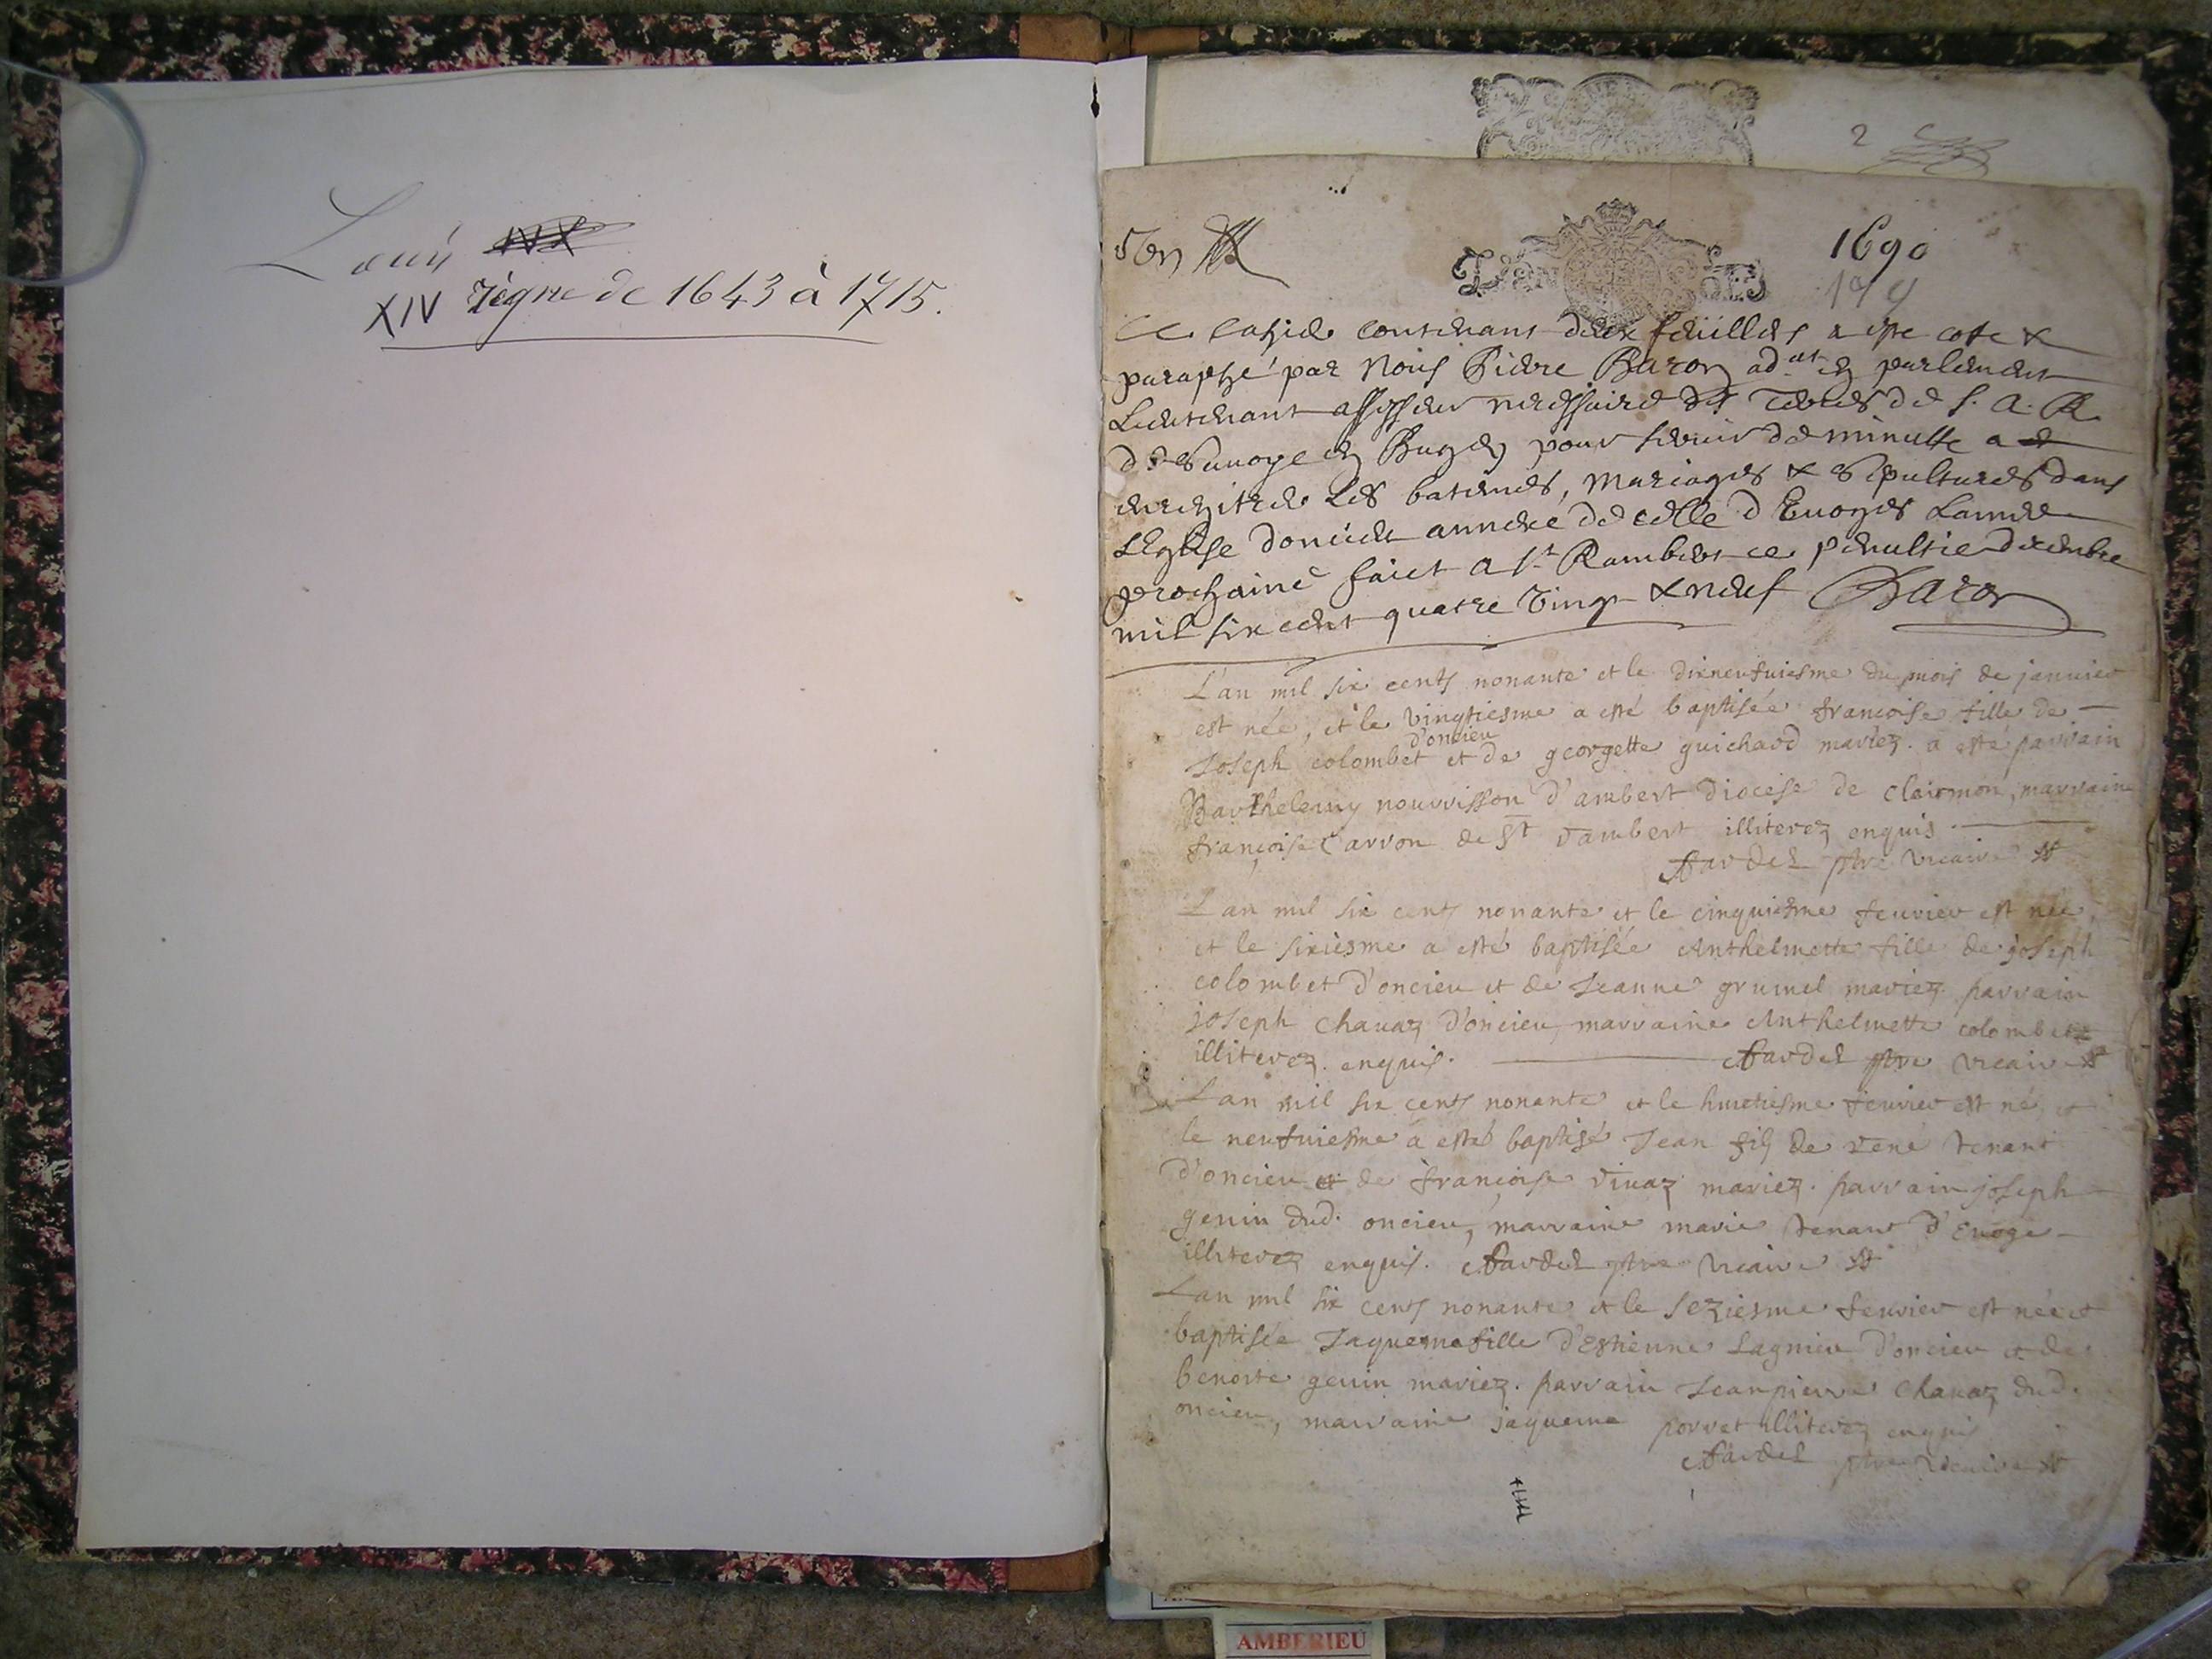 Louis
XIV règne de 1643 à 1715.
2
1690
Ce cahier contenant deux feuilles a este cotte &
paraphé par Nous Pierre Baron ad.at en parlement
Lieutenant assesseur necessaire des Terres de S. A. R.
de Savoye en Bugey pour servir de minutte a
enregitrer Les batemes, Mariages & Sepultures dans
LEglise doncieu annexe de celle d Euoges Lannee
prochaine faict a St Rambert ce penultie decembre
mil six cent quatre Vingt & neuf Baron
L'an mil six cents nonante et le dixneufuiesme du mois de januier
est née, et le vingtiesme a esté baptisée françoise fille de
d'oncieu
Joseph colombet et de georgette guichard mariez. a esté parrain
Barthelemy nourrisson d'ambert diocese de clairmon, marraine
françoise Carron de St rambert illiterez enquis.
Tardel ptre vicaire
L'an mil six cents nonante et le cinquiesme feurier est née,
et le sixiesme a esté baptisée Anthelmette fille de joseph
colombet d'oncieu et de Jeanne grumel mariez. parrain
joseph chauaz d'oncieu, marraine Anthelmette colombet
illiterez enquis. Tardel ptre vicaire
L'an mil six cents nonante et le huictiesme feurier est né, et
le neufuiesme a esté baptisé Jean fils de rené tenant
d'oncieu et de françoise viuaz mariez. parrain joseph
genin dud. oncieu, marraine marie tenant d'Euoge
illiterez enquis. Tardel ptre vicaire
L'an mil six cents nonante et le seziesme feurier est née et
baptisée Jaquema fille d'Estienne Lagnieu d'oncieu et de
benoite genin mariez. parrain Jeanpierre chauaz dud.
oncieu, marraine jaquema porret illiterez enquis
Tardel ptre vicaire
AMBERIEU